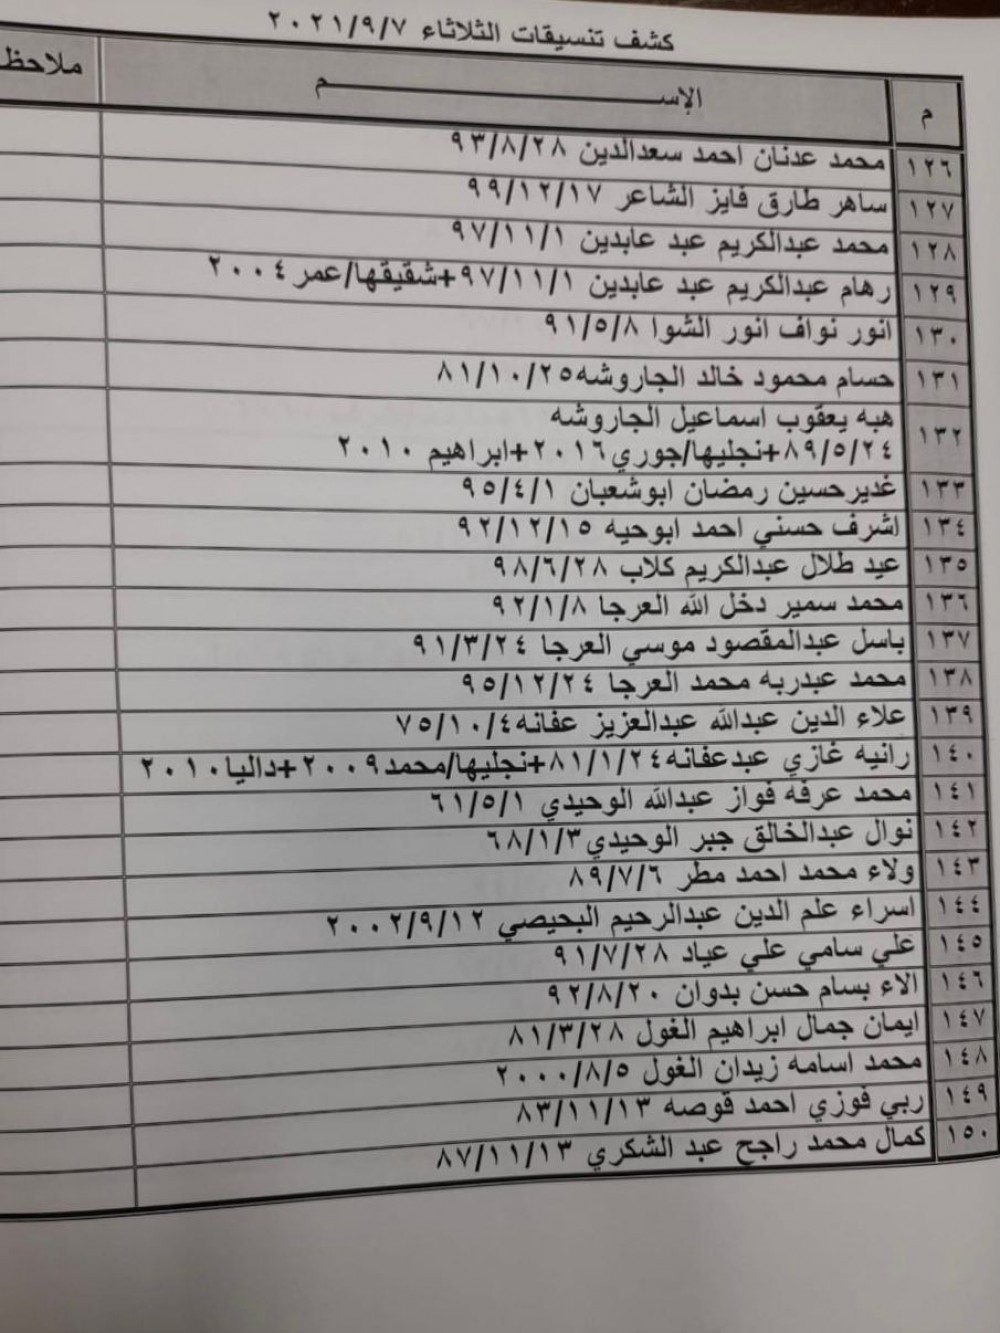 كشف تنسيقات الثلاثاء ٢٠٢١/٩/٧
م الإســـم ملاحظ
١٢٦ محمد عدنان احمد سعدالدين ٩٣/٨/٢٨
١٢٧ ساهر طارق فايز الشاعر ٩٩/١٢/١٧
١٢٨ محمد عبدالكريم عبد عابدين ٩٧/١١/١
١٢٩ رهام عبدالكريم عبد عابدين ٩٧/١١/١+شقيقها/عمر ٢٠٠٤
١٣٠ انور نواف انور الشوا ٩١/٥/٨
١٣١ حسام محمود خالد الجاروشه٨١/١٠/٢٥
١٣٢ هبه يعقوب اسماعيل الجاروشه
٨٩/٥/٢٤+نجليها/جوري٢٠١٦+ابراهيم ٢٠١٠
١٣٣ غديرحسين رمضان ابوشعبان ٩٥/٤/١
١٣٤ اشرف حسني احمد ابوحيه ٩٢/١٢/١٥
١٣٥ عيد طلال عبدالكريم كلاب ٩٨/٦/٢٨
١٣٦ محمد سمير دخل الله العرجا ٩٢/١/٨
١٣٧ باسل عبدالمقصود موسي العرجا ٩١/٣/٢٤
١٣٨ محمد عبدربه محمد العرجا ٩٥/١٢/٢٤
١٣٩ علاء الدين عبدالله عبدالعزيز عفانه٧٥/١٠/٤
١٤٠ رانيه غازي عبدعفانه٨١/١/٢٤+نجليها/محمد٢٠٠٩+داليا٢٠١٠
١٤١ محمد عرفه فواز عبدالله الوحيدي ٦١/٥/١
١٤٢ نوال عبدالخالق جبر الوحيدي٦٨/١/٣
١٤٣ ولاء محمد احمد مطر ٨٩/٧/٦
١٤٤ اسراء علم الدين عبدالرحيم البحيصي ٢٠٠٢/٩/١٢
١٤٥ علي سامي علي عياد ٩١/٧/٢٨
١٤٦ الاء بسام حسن بدوان ٩٢/٨/٢٠
١٤٧ ايمان جمال ابراهيم الغول ٨١/٣/٢٨
١٤٨ محمد اسامه زيدان الغول ٢٠٠٠/٨/٥
١٤٩ ربي فوزي احمد قوصه ٨٣/١١/١٣
١٥٠ كمال محمد راجح عبد الشكري ٨٧/١١/١٣